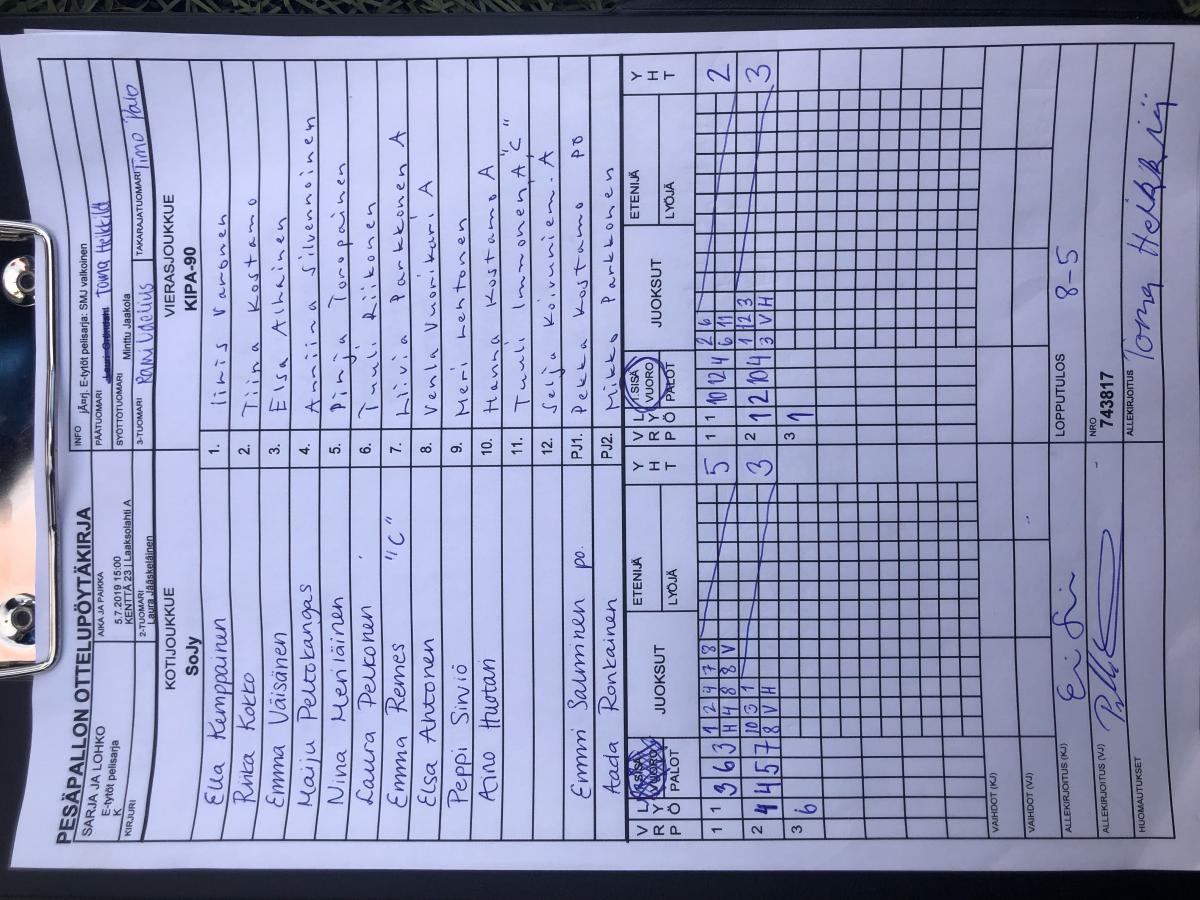 PESÄPALLON OTTELUPÖYTÄKIRJA
SARJA JA LOHKO
E-tytöt pelisarja
K
AIKA JA PAIKKA
5.7.2019 15:00
KENTTÄ 23 | Laaksolahti A
INFO jÄ¤rj. E-tytöt pelisarja: SMJ valkoinen
PÄÄTUOMARI Toma Heikkilä
SYÖTTÖTUOMARI Minttu Jaakola
KIRJURI
2-TUOMARI
Laura Jääskeläinen
3-TUOMARI Rami Udelius
TAKARAJATUOMARI Timo Palo
KOTIJOUKKUE
SoJy
VIERASJOUKKUE
KIPA-90
Ella Kemppainen 1. Iiris Varonen
Riika Kokko 2. Tiina Kostamo
Emma Väisänen 3. Elsa Alhainen
Maiju Peltokangas 4. Anniina Silvennoinen
Nina Meriläinen 5. Pinja Toropainen
Laura Pelkonen 6. Tuuli Riikonen
Emma Remes "C" 7. Liivia Parkkonen A
Elsa Ahtonen 8. Venla Vuorikari A
Peppi Sirviö 9. Meri Kehtonen
Aino Huotari 10. Hanna Kostamo A
11. Tuuli Immonen A "C"
12. Selja Koivuniemi A
Emmi Salminen po. PJ1. Pekka Kostamo po
Aada Ronkainen PJ2. Mikko Parkkonen
V R P L Y Ö 1.SISÄ VUORO PALOT JUOKSUT ETENIJÄ LYÖJÄ Y H T
V R P L Y Ö 1.SISÄ VUORO PALOT JUOKSUT ETENIJÄ LYÖJÄ Y H T
1 1 3 6 3 1 2 4 7 8 5 1 1 10 12 4 2 6 2
H 4 8 8 V 6 11
2 4 4 5 7 10 3 1 3 2 12 10 4 1 12 3 3
8 V H 3 V H
3 6 3 1
VAIHDOT (KJ)
VAIHDOT (VJ)
ALLEKIRJOITUS (KJ)
LOPPUTULOS 8-5
ALLEKIRJOITUS (VJ)
NRO
743817
HUOMAUTUKSET
ALLEKIRJOITUS Toma Heikkilä